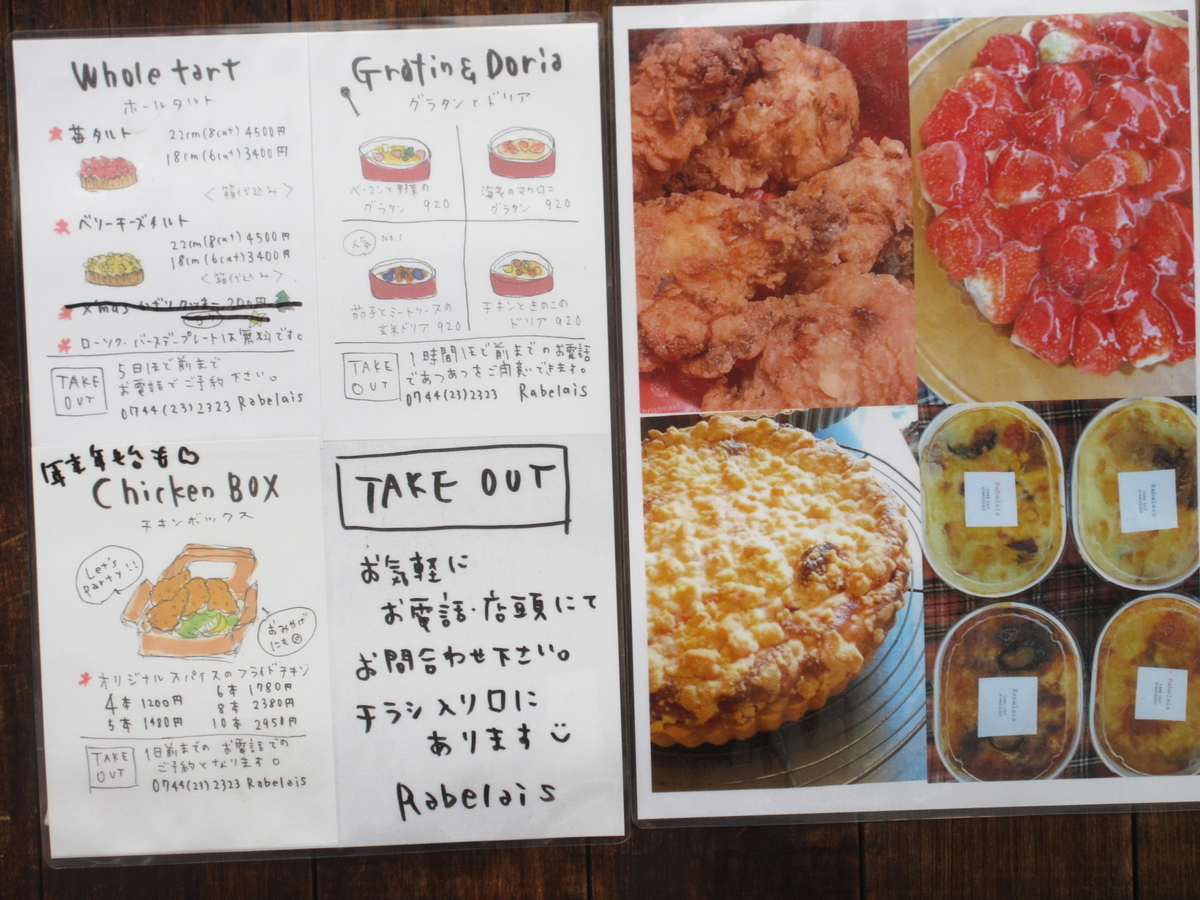 Whole tart
ホールタルト
苺タルト
22cm(8cut)4500円
18cm(6cut)3400円
<箱代込み>
ベリーチーズタルト
22cm(8cut)4500円
18cm(6cut)3400円
<箱代込み>
200円
ローソク・バースデープレートは無料です。
TAKE OUT
5日ほど前まで
お電話でご予約下さい。
0744(23)2323 Rabelais
Gratin & Doria
グラタンとドリア
ベーコンと野菜の
グラタン 920
海老のマカロニ
グラタン 920
人気 NO.1
茄子とミートソースの
玄米ドリア 920
チキンときのこの
ドリア 920
TAKE OUT
1時間ほど前までのお電話
であつあつをご用意できます。
0744(23)2323 Rabelais
年末年始も♡
Chicken BOX
チキンボックス
Let's Party!!
おみやげにも☺
オリジナルスパイスのフライドチキン
4本 1200円
5本 1480円
6本 1780円
8本 2380円
10本 2950円
TAKE OUT
1日前までの お電話での
ご予約となります。
0744(23)2323 Rabelais
TAKE OUT
お気軽に
お電話・店頭にて
お問合わせ下さい。
チラシ入り口に
あります☺
Rabelais
Christmas
Rabelais
Rabelais
Rabelais
Rabelais